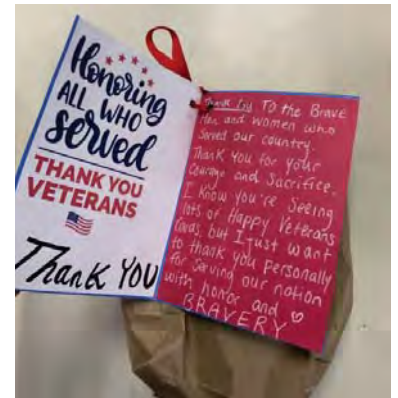 Honoring
ALL WHO
served
THANK YOU
VETERANS
Thank YOU
Thank You To the Brave
Men and women who
Served our country.
Thank You for your
Courage and Sacrifice.
I Know you're Seeing
lots of Happy Veterans
Cards, but I just want
to thank you Personally
for Serving our nation
with honor and
BRAVERY